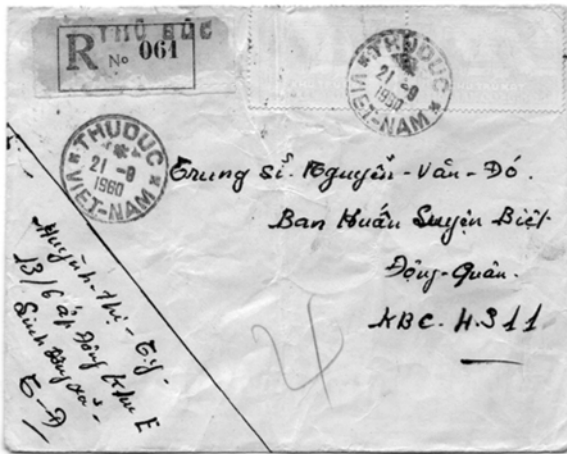 THỦ ĐỨC
R No 061
THUDUC
21-9
1960
VIET-NAM
THUDUC
21-9
1960
VIET-NAM
Trung sĩ. Nguyễn-Văn-Đó.
Ban Huấn Luyện Biệt-
Động-Quân.
KBC. 4.311
Huỳnh-thị-Tỵ-
13/6 ấp Đông Khu E
T-Đ
4